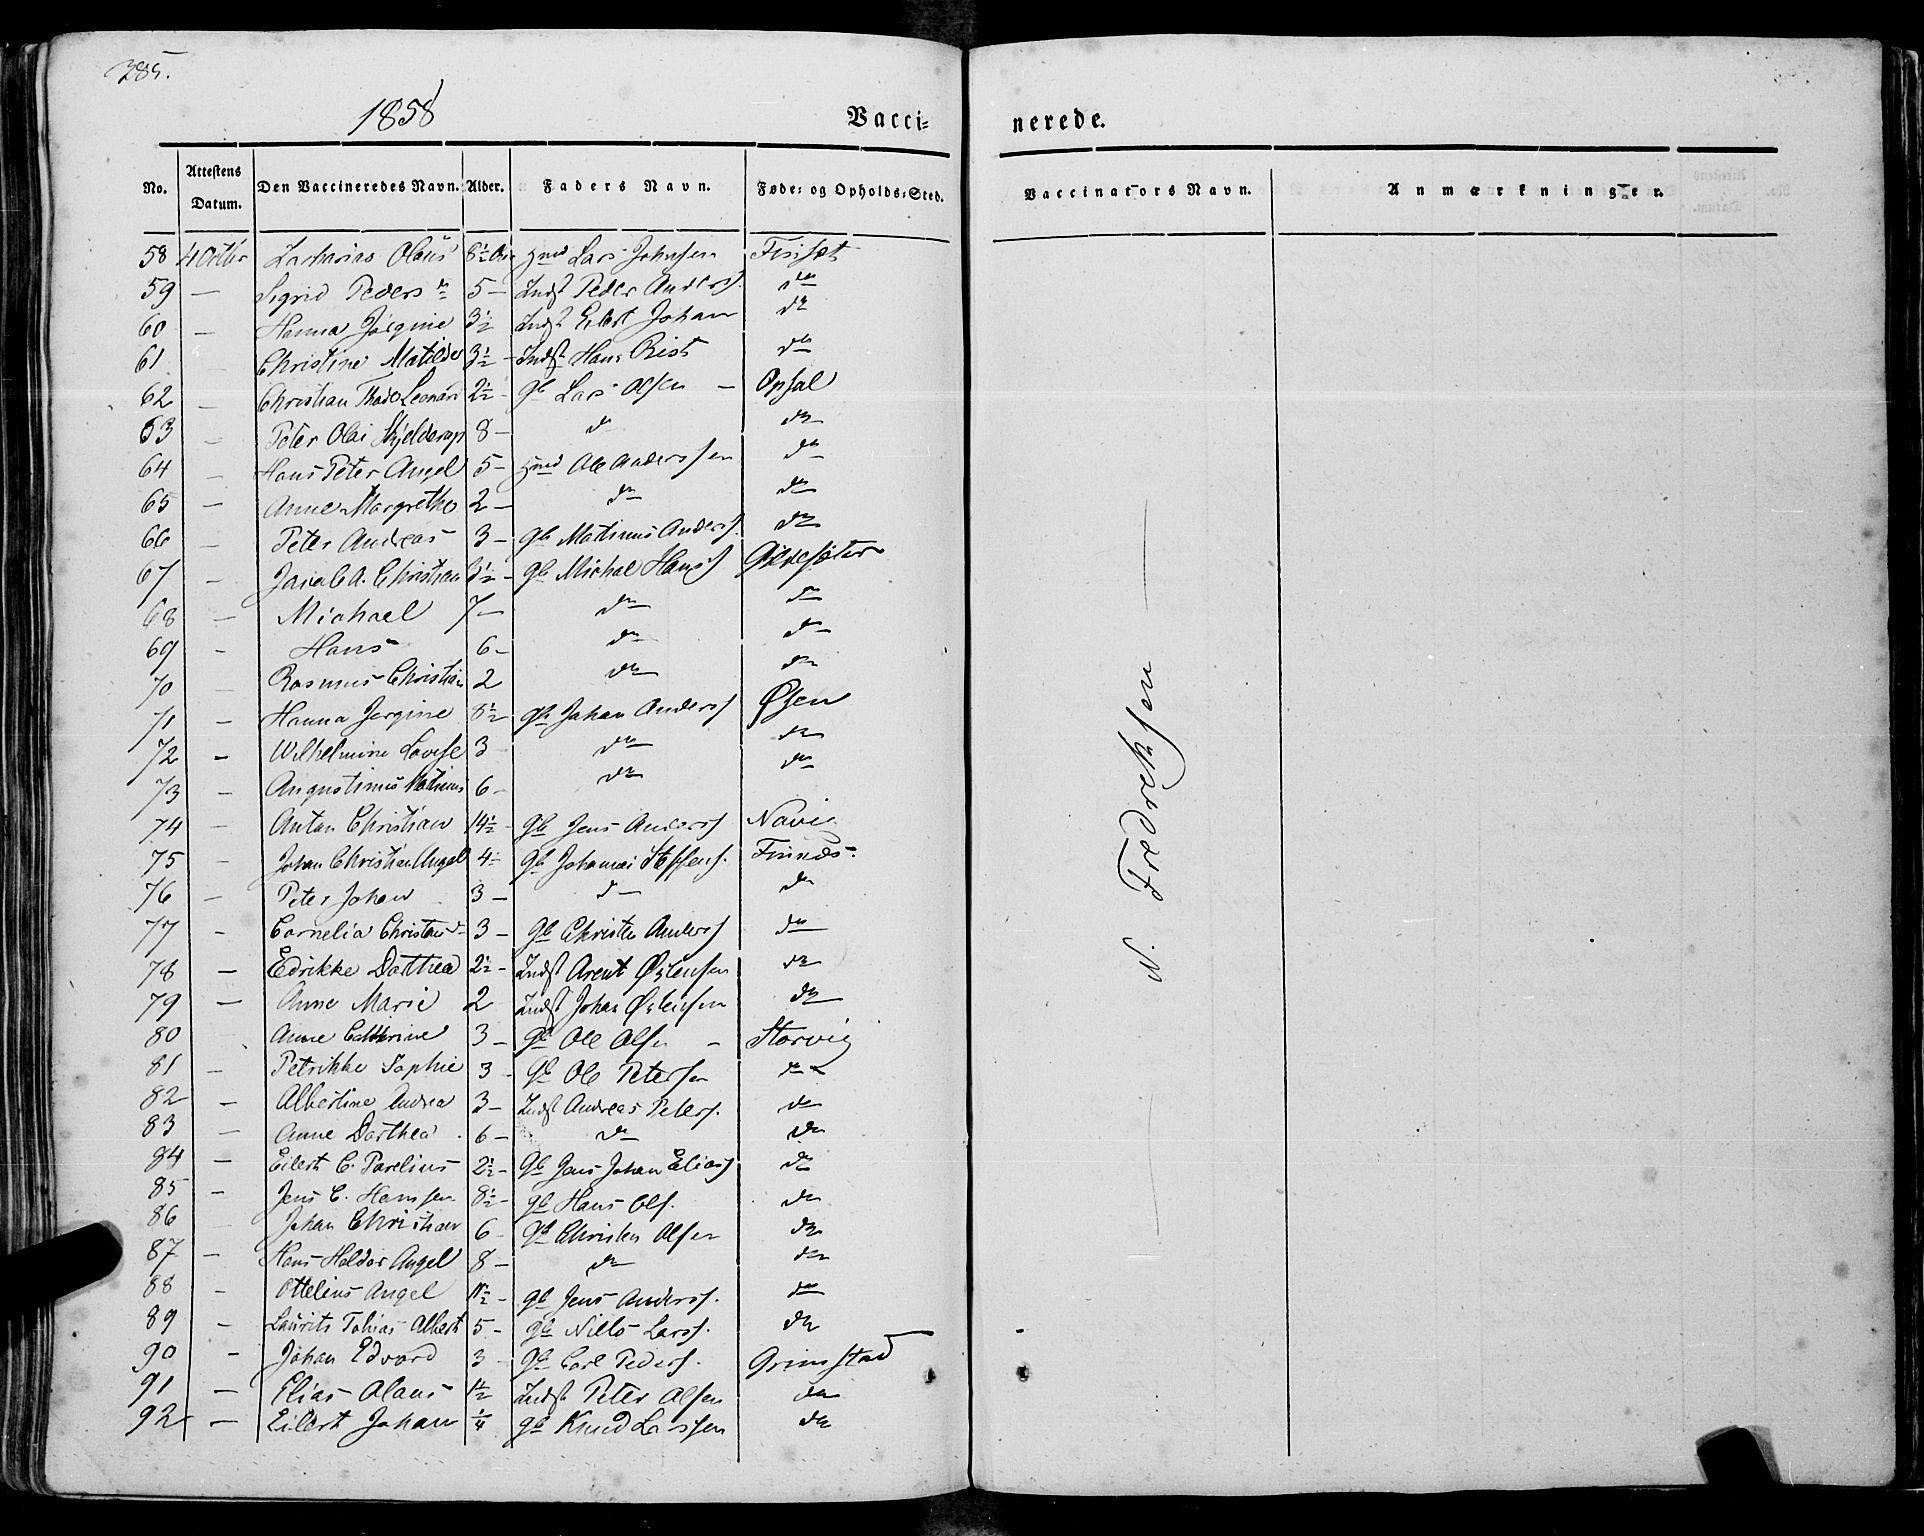 285.
1858
Vacci= nerede.
No. Attestens Datum. Den Vaccineredes Navn. Alder. Faders Navn. Føde= og Opholds=Sted. Vaccinators Navn. Anmærkninger.
58 4 Octbr Zacharias Olaus 8½ Lars Johnsen
59 — Sigrid Peders 5 — Indst Peder Anders.
60 — Hanna Jørgine 3½ Indst Eilert Johan do
61 Christine Matilde 3½ — Indst Hans Rist do
62 — Christian Thode Leonard 2½ gb Lars Olsen — Opsal
63 — Peter Olai Hjelderup 8 — do do
64 — Hans Peter Angel 5 — Ole Anderssen do
65 — Anne Margrethe 2 — do do
66 — Peter Andreas 3 — gb Matinus Anders. do
67 — Jacob A. Christian 3½ — gb Michal Hans
68 — Michael 7 — do do
69 — Hans 6 — do do
70 — Rasmus Christian 2 do do
71 — Hanna Jørgine 8½ gb Johan Anders Øsen
72 — Wilhelmine Lovise 3 do do
73 — Augustinus Matinus 6 — do do
74 — Anton Christian 14½ — gb Jens Anders
75 — Johan Christian Angel 4 gb Johannes Steffens. Finnes.
76 — Peter Johan 3 — do do
77 — Cornelia Christand 3 — gb Christen Anders do
78 — Edrikke Dorthea 2½ — Indst Arent Østensen do
79 — Anne Marie 2 Indst Johan Østensen do
80 Anne Cathrine 3 — gb Ole Olsen — Storvig
81 — Petrikke Sophie 3 — gb Ole Petersen do
82 — Albertine Andrea 3 — Indst Andreas Peters. do
83 — Anne Dorthea 6 — do do
84 — Eilert C. Parelius 2½ — gb Jens Johan Elias do
85 — Jens C. Hansen 8½ — gb Hans Ols. do
86 Johan Christian 6 — gb Christen Olsen do
87 — Hans Holdor Angel 8 — do do
88 — Ottelius Angel gb Jens Anders. do
89 — Laurits Tobias Albert 5 — gb Nills Lars. do
90 — Johan Edvard 3 — gb Carl Peders. Grimstad
91 — Elias Olaus 1½ Indst Peter Olsen do
92 — Eilert Johan ¼ gb Knud Larssen do
N. Fredreksen